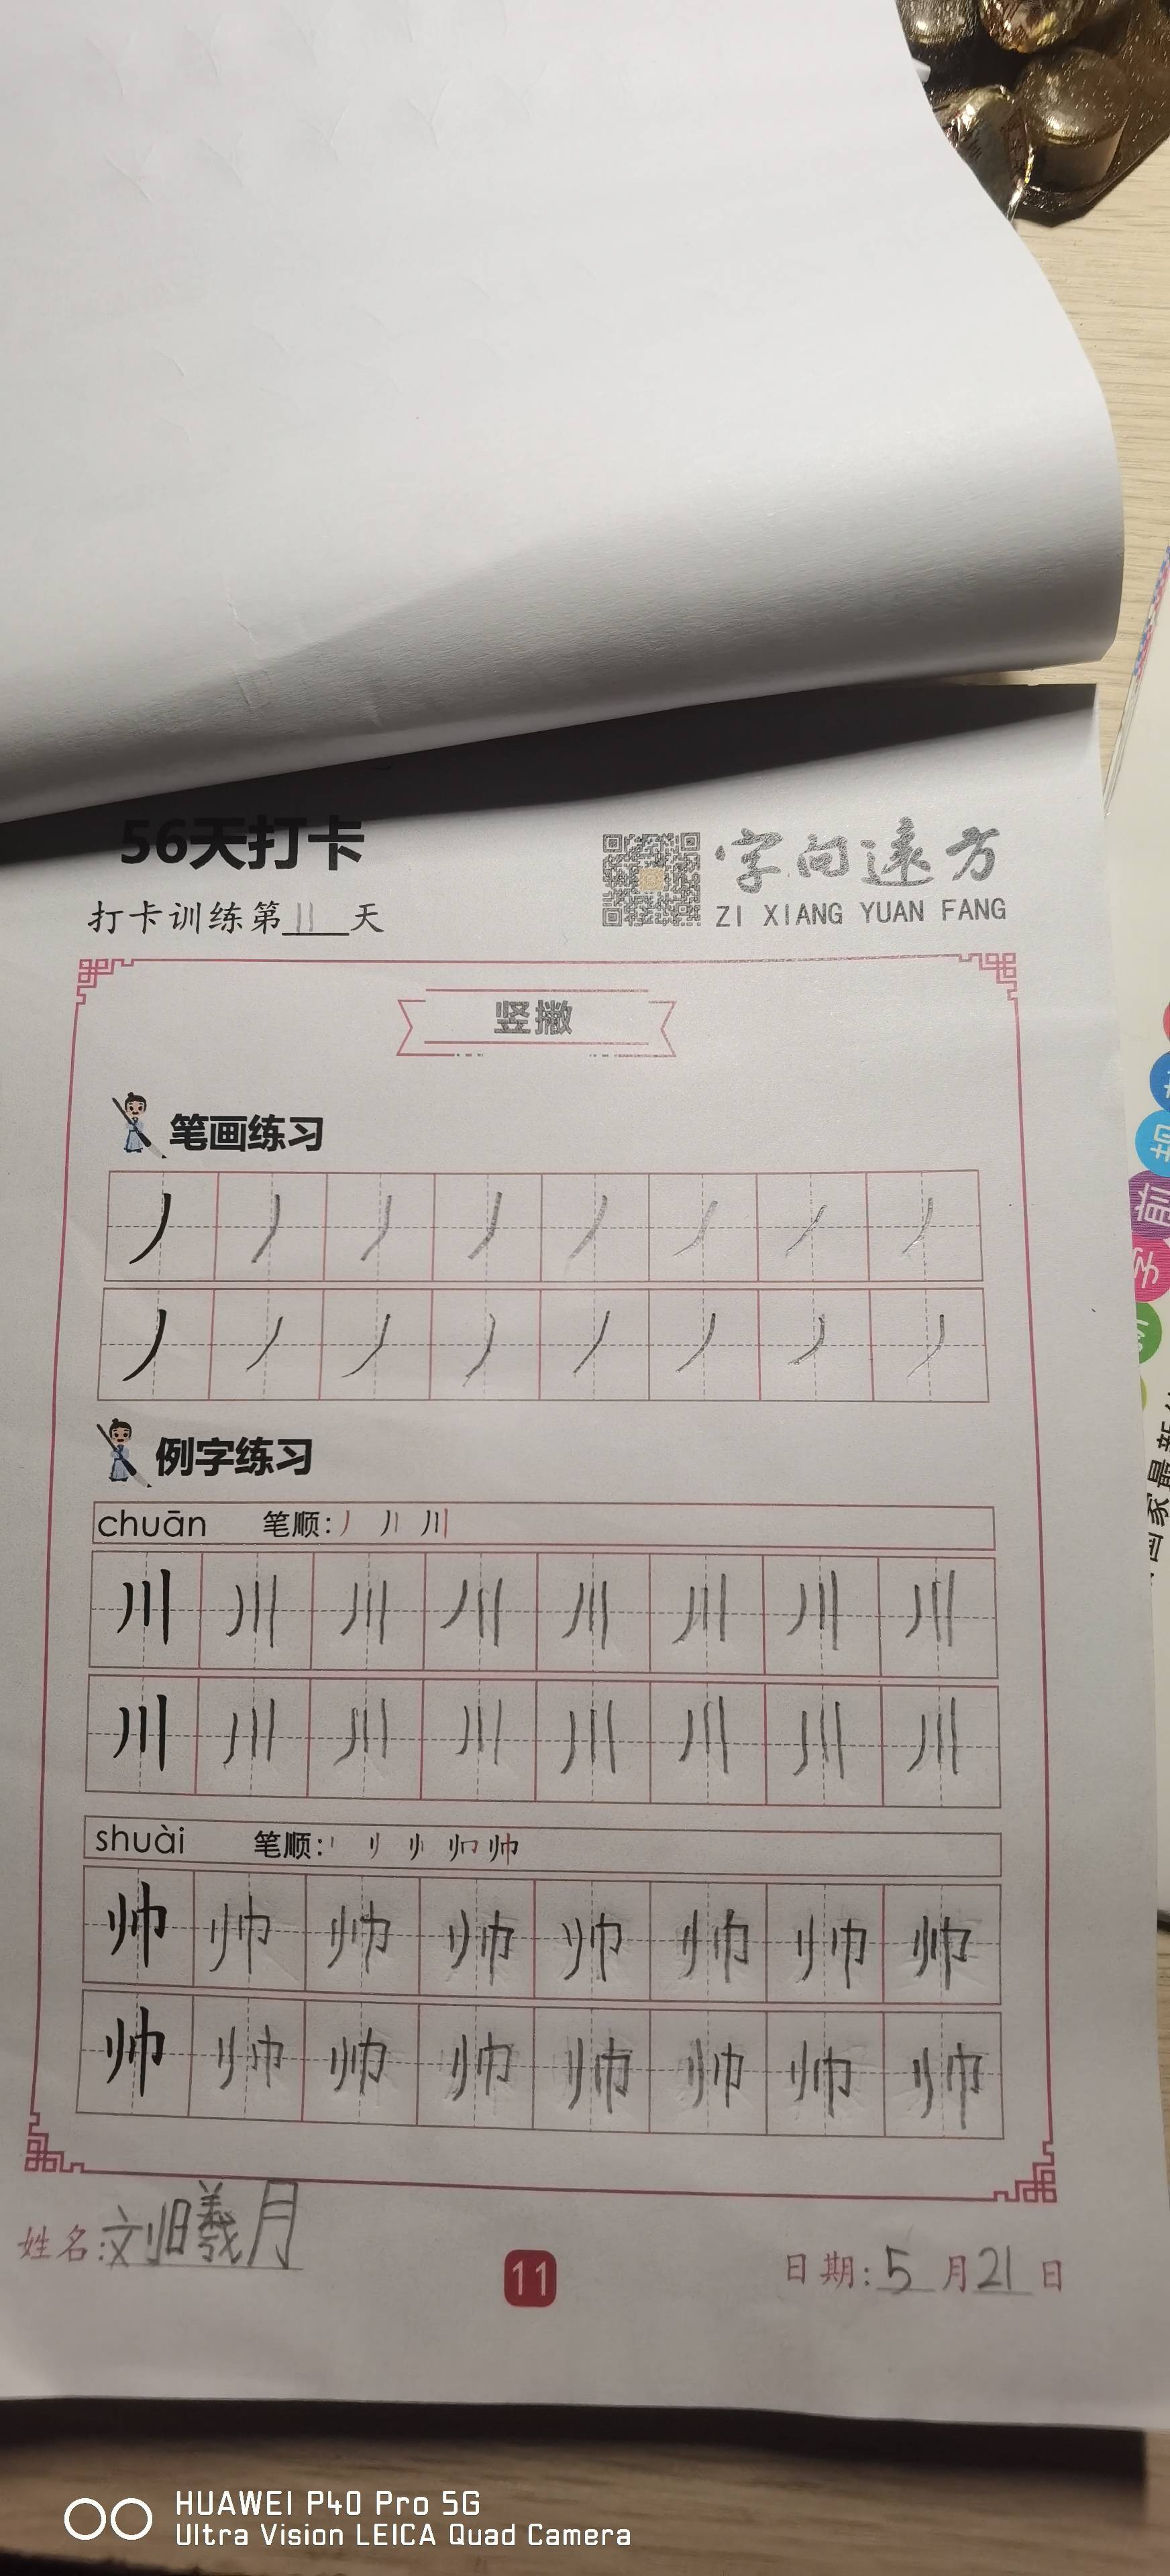 56天打卡
字向遠方
ZI XIANG YUAN FANG
打卡训练第11天
竖撇
笔画练习
丿 丿 丿 丿 丿 丿 丿 丿
丿 丿 丿 丿 丿 丿 丿 丿
例字练习
chuān 笔顺:
川 川 川 川 川 川 川 川
川 川 川 川 川 川 川 川
shuài 笔顺:
帅 帅 帅 帅 帅 帅 帅 帅
帅 帅 帅 帅 帅 帅 帅 帅
姓名:刘曦月
11
日期:5月21日
HUAWEI P40 Pro 5G
Ultra Vision LEICA Quad Camera